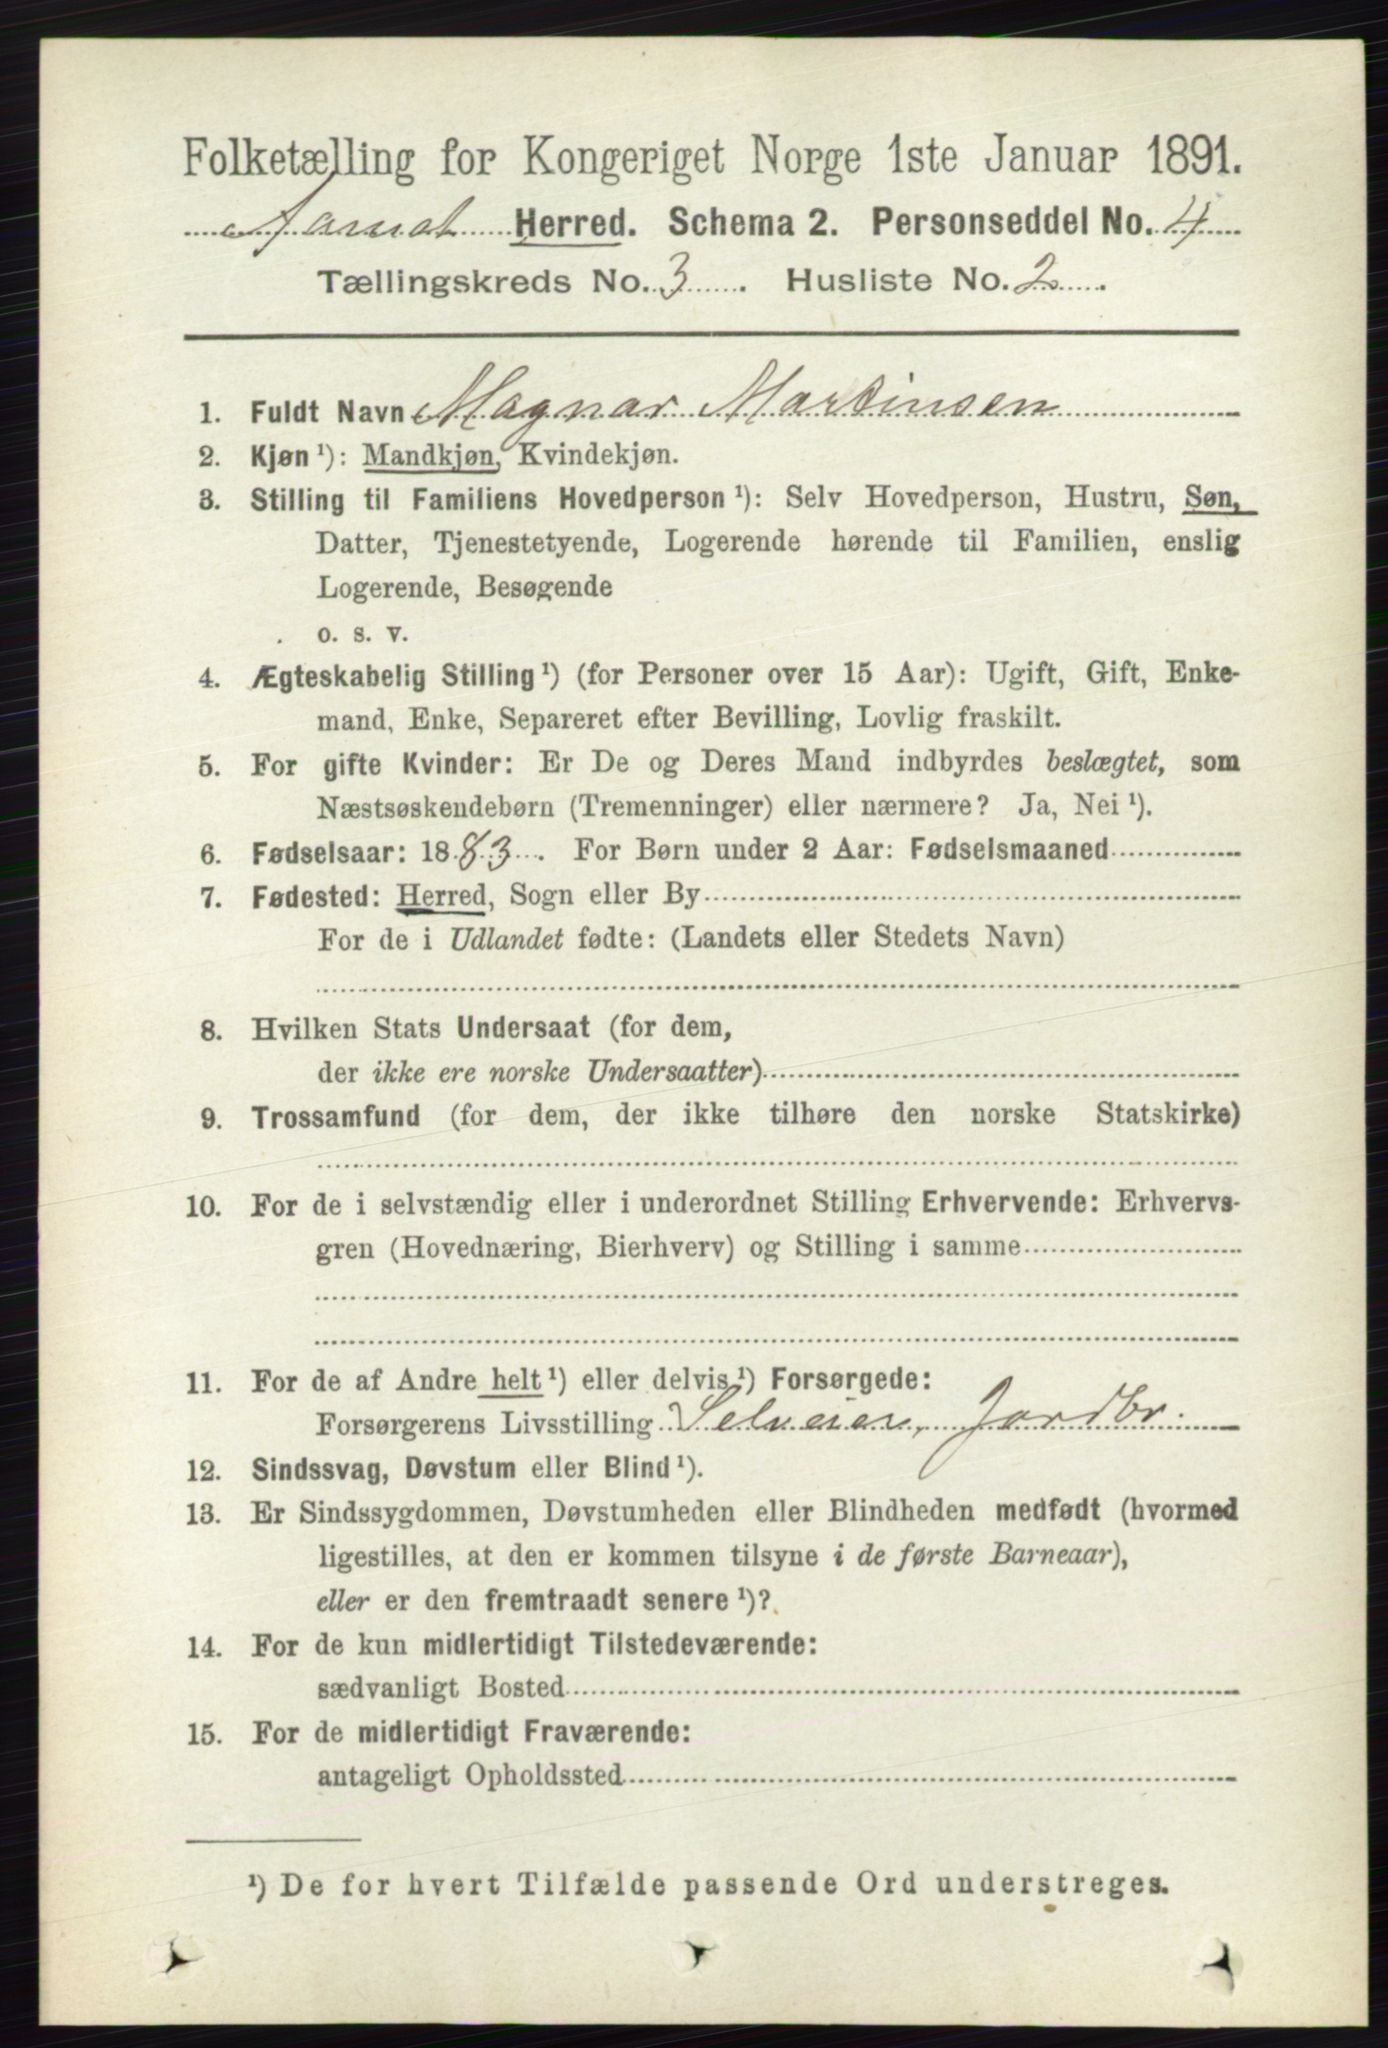 Folketælling for Kongeriget Norge 1ste Januar 1891.
Aamot Herred. Schema 2. Personseddel No. 4
Tællingskreds No. 3. Husliste No. 2.
1. Fuldt Navn Magnar Martinsen
2. Kjøn ¹): Mandkjøn, Kvindekjøn.
3. Stilling til Familiens Hovedperson ¹): Selv Hovedperson, Hustru, Søn,
Datter, Tjenestetyende, Logerende hørende til Familien, enslig
Logerende, Besøgende
o. s. v.
4. Ægteskabelig Stilling ¹) (for Personer over 15 Aar): Ugift, Gift, Enke-
mand, Enke, Separeret efter Bevilling, Lovlig fraskilt.
5. For gifte Kvinder: Er De og Deres Mand indbyrdes beslægtet, som
Næstsøskendebørn (Tremenninger) eller nærmere? Ja, Nei ¹).
6. Fødselsaar: 1883. For Børn under 2 Aar: Fødselsmaaned
7. Fødested: Herred, Sogn eller By
For de i Udlandet fødte: (Landets eller Stedets Navn)
8. Hvilken Stats Undersaat (for dem,
der ikke ere norske Undersaatter)
9. Trossamfund (for dem, der ikke tilhøre den norske Statskirke)
10. For de i selvstændig eller i underordnet Stilling Erhvervende: Erhvervs-
gren (Hovednæring, Bierhverv) og Stilling i samme
11. For de af Andre helt ¹) eller delvis ¹) Forsørgede:
Forsørgerens Livsstilling Selveier, Jordbr.
12. Sindssvag, Døvstum eller Blind ¹).
13. Er Sindssygdommen, Døvstumheden eller Blindheden medfødt (hvormed
ligestilles, at den er kommen tilsyne i de første Barneaar),
eller er den fremtraadt senere ¹)?
14. For de kun midlertidigt Tilstedeværende:
sædvanligt Bosted
15. For de midlertidigt Fraværende:
antageligt Opholdssted
¹) De for hvert Tilfælde passende Ord understreges.